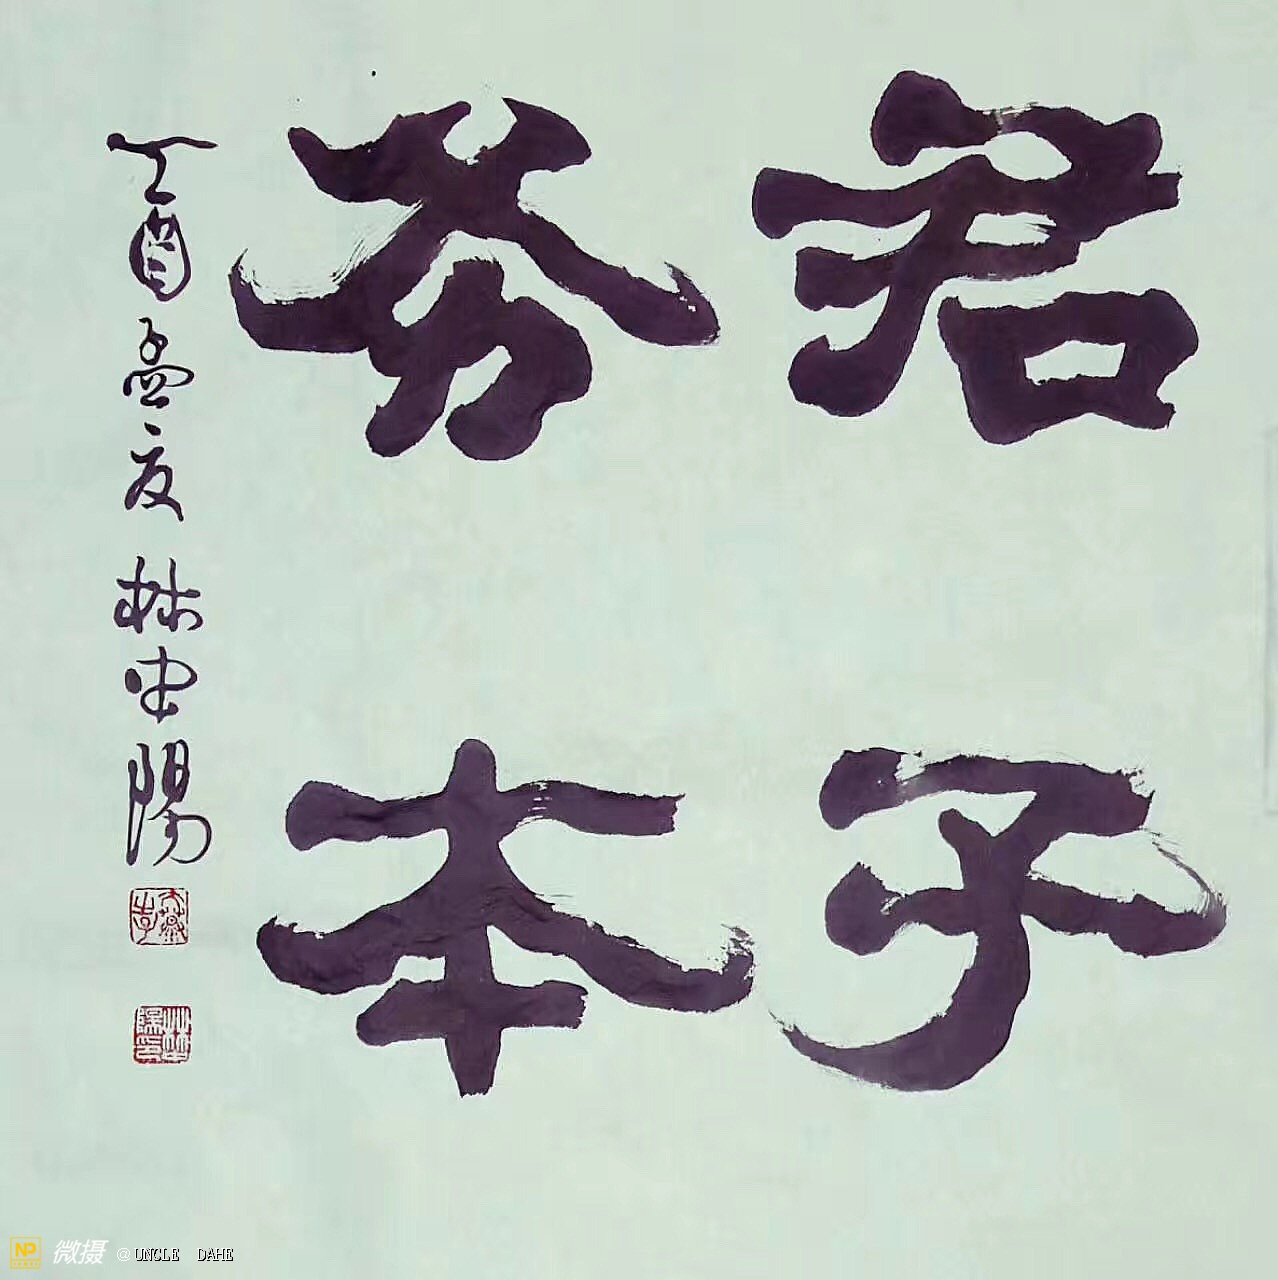 君子
务本
丁酉孟夏 林陽
NP 微摄 @UNCLE DAHE